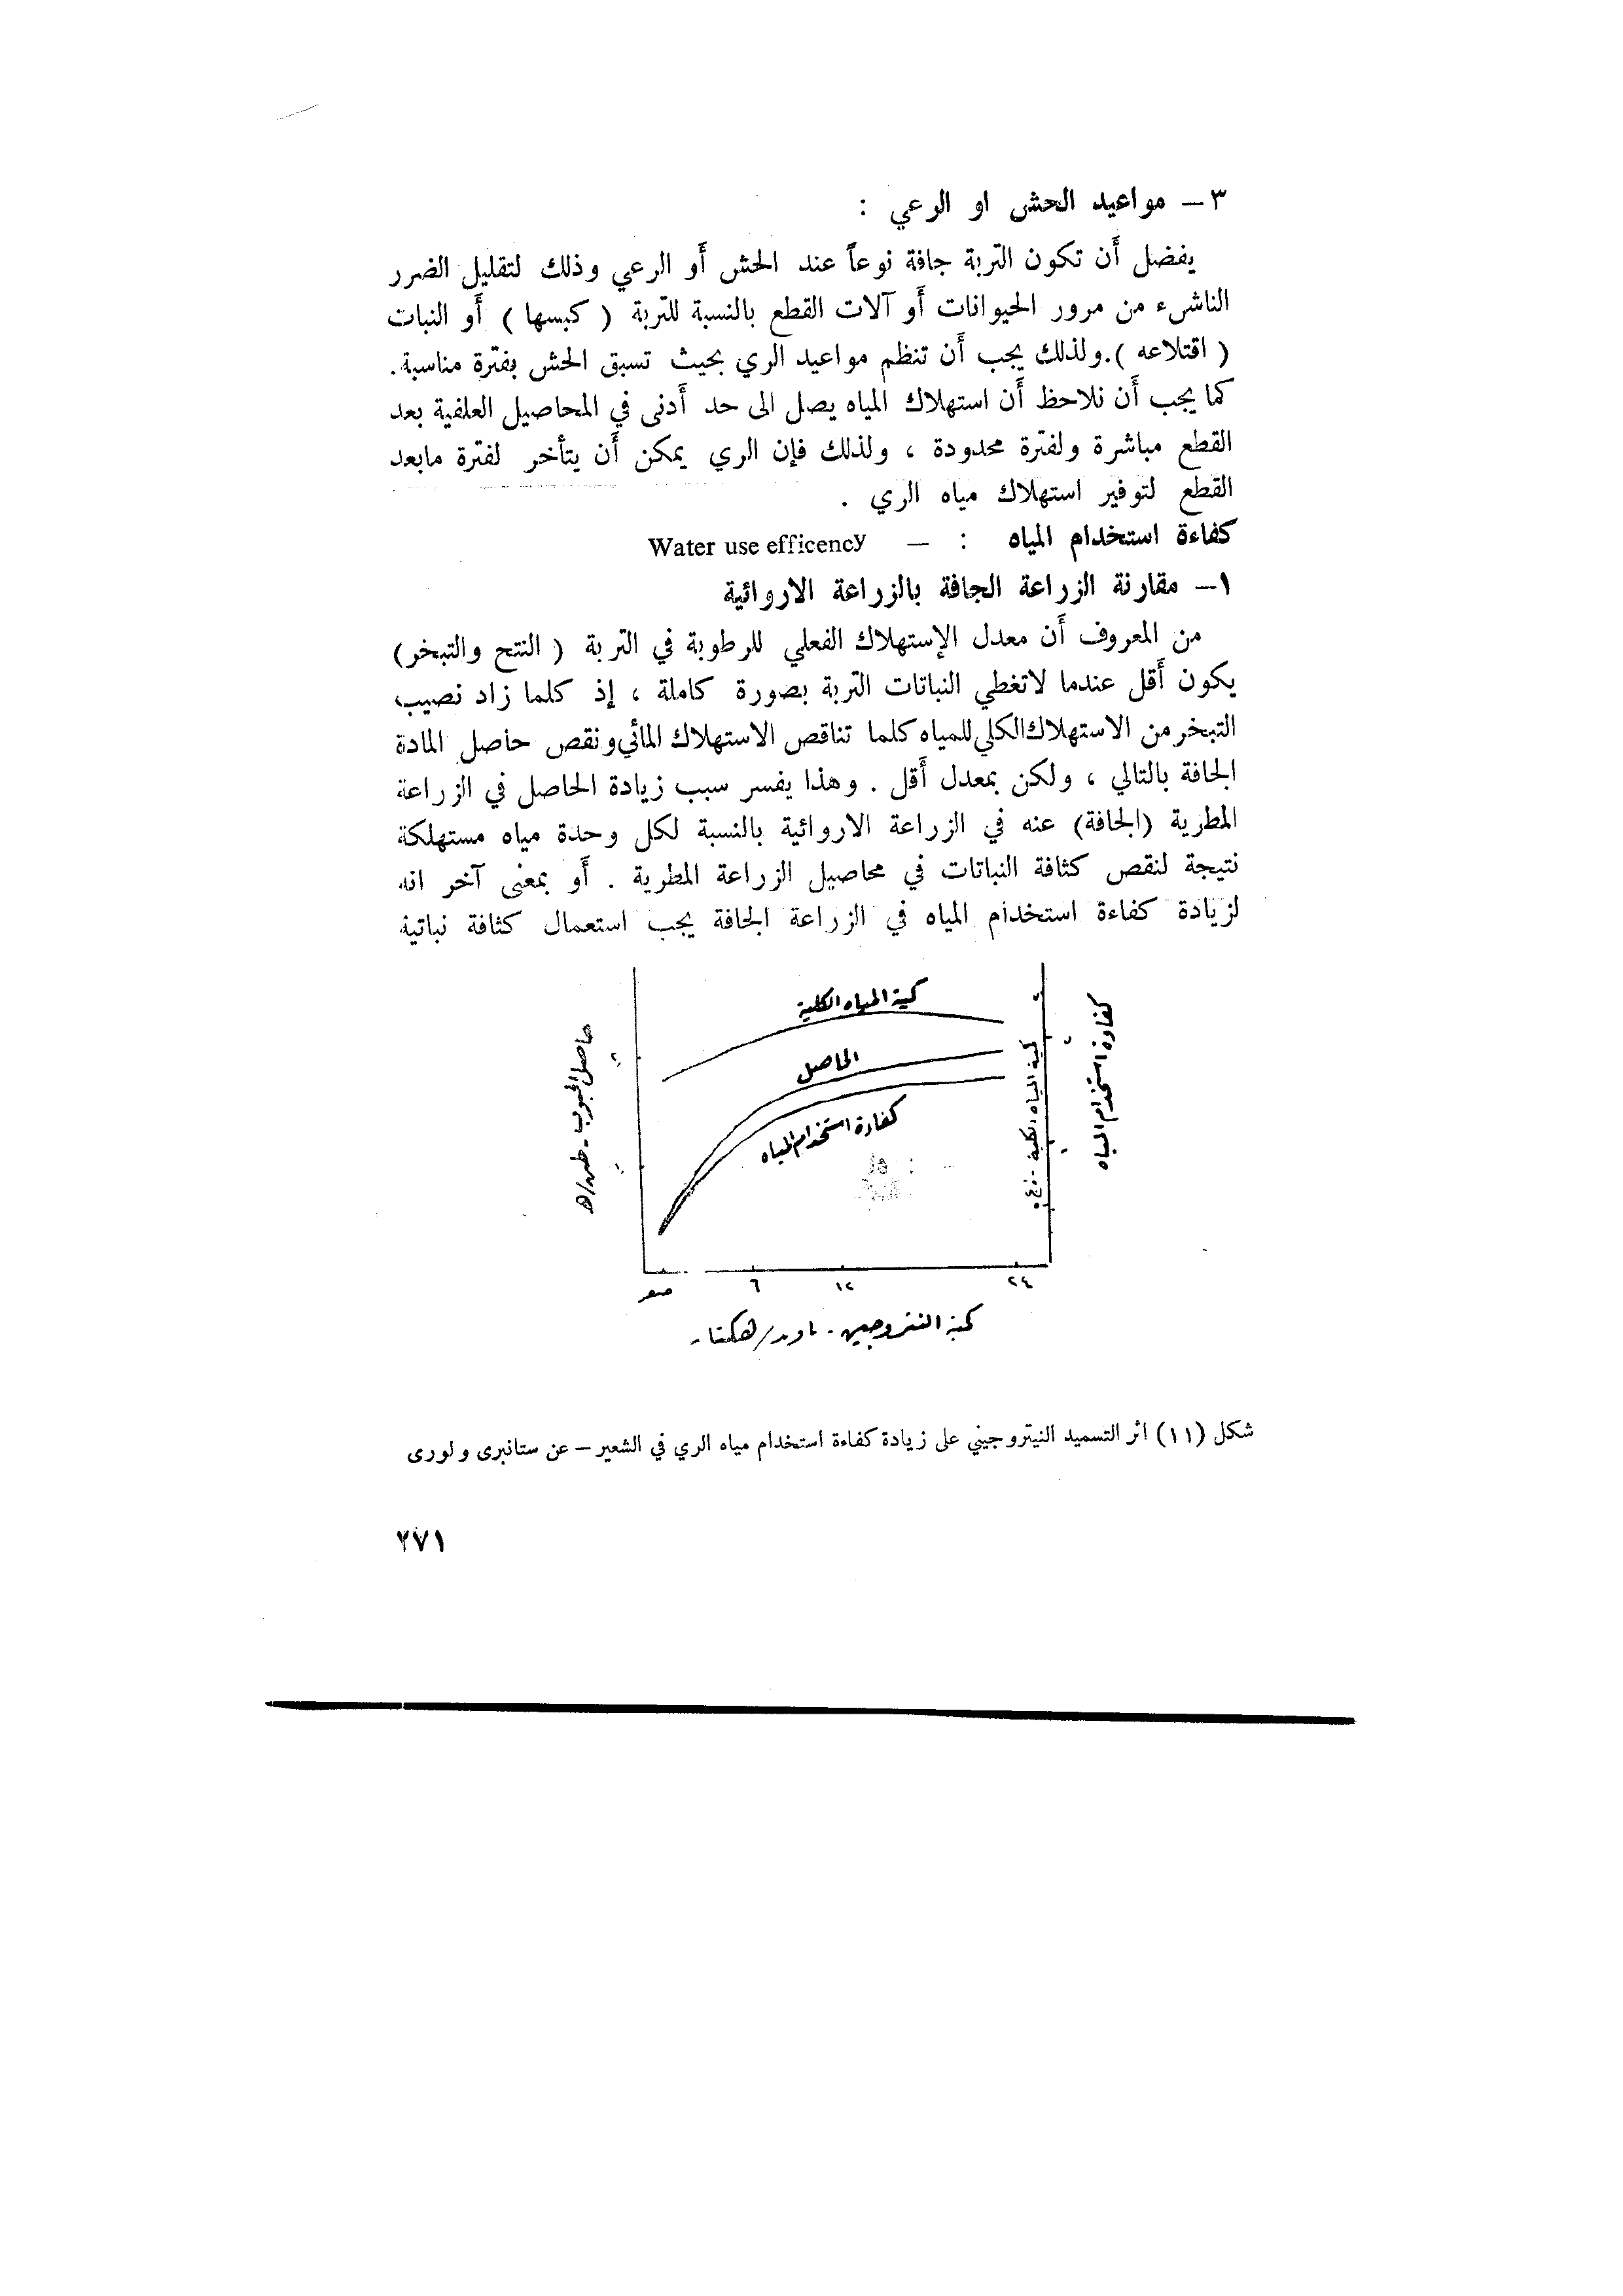 ٣ — مواعيد الحش او الرعي :
يفضل أن تكون التربة جافة نوعاً عند الحش أو الرعي وذلك لتقليل الضرر
الناشىء من مرور الحيوانات أو آلات القطع بالنسبة للتربة ( كبسها ) أو النبات
( اقتلاعه ). ولذلك يجب أن تنظم مواعيد الري بحيث تسبق الحش بفترة مناسبة.
كما يجب أن نلاحظ أن استهلاك المياه يصل الى حد أدنى في المحاصيل العلفية بعد
القطع مباشرة ولفترة محدودة ، ولذلك فإن الري يمكن أن يتأخر لفترة مابعد
القطع لتوفير استهلاك مياه الري .
كفاءة استخدام المياه : — Water use efficency
١ — مقارنة الزراعة الجافة بالزراعة الاروائية
من المعروف أن معدل الإستهلاك الفعلي للرطوبة في التربة ( النتح والتبخر)
يكون أقل عندما لاتغطي النباتات التربة بصورة كاملة ، إذ كلما زاد نصيب
التبخر من الاستهلاك الكلي للمياه كلما تناقص الاستهلاك المائي ونقص حاصل المادة
الجافة بالتالي ، ولكن بمعدل أقل . وهذا يفسر سبب زيادة الحاصل في الزراعة
المطرية (الجافة) عنه في الزراعة الاروائية بالنسبة لكل وحدة مياه مستهلكة
نتيجة لنقص كثافة النباتات في محاصيل الزراعة المطرية . أو بمعنى آخر انه
لزيادة كفاءة استخدام المياه في الزراعة الجافة يجب استعمال كثافة نباتية
كمية المياه الكلية
الحاصل
كفاءة استخدام المياه
حاصل الحبوب - طن/ه
كمية المياه الكلية
كفاءة استخدام المياه
صفر ٦ ١٢ ٢٤
كمية النتروجين - باوند/هكتار
شكل (١١) اثر التسميد النيتروجيني على زيادة كفاءة استخدام مياه الري في الشعير — عن ستانبرى ولورى
٢٧١